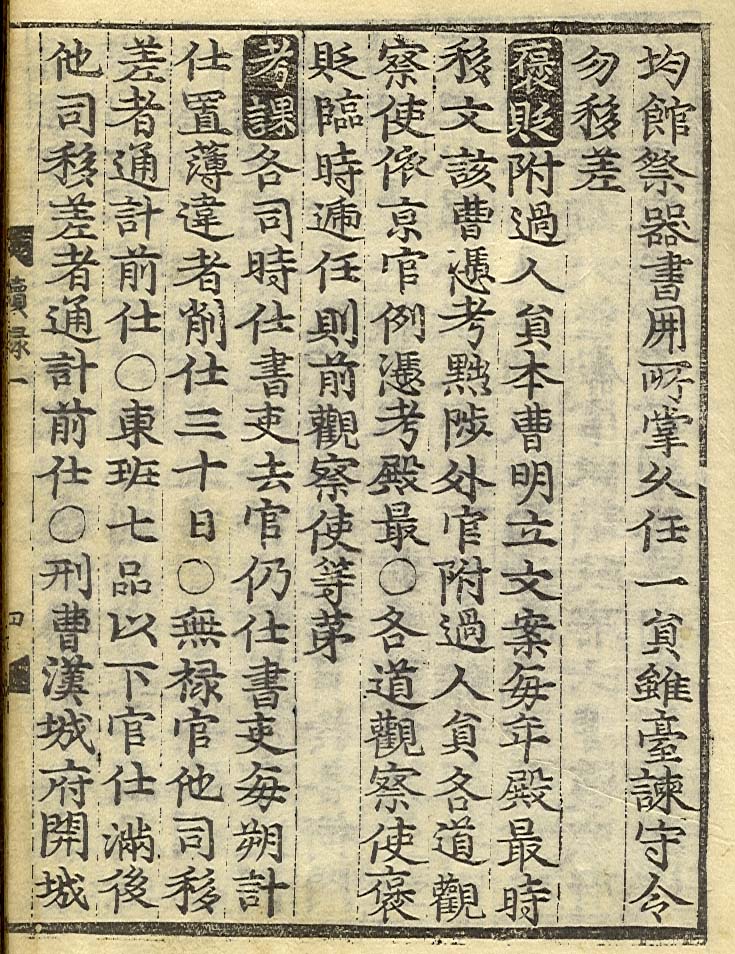 均館祭器書冊所掌久任一員雖臺諫守令
勿移差
褒貶附過人員本曹明立文案每年殿最時
移文該曹憑考黜陟外官附過人員各道觀
察使依京官例憑考殿最○各道觀察使褒
貶臨時遞任則前觀察使等第
考課各司時仕書吏去官仍仕書吏每朔計
仕置簿違者削仕三十日○無祿官他司移
差者通計前仕○東班七品以下官仕滿後
他司移差者通計前仕○刑曹漢城府開城
續錄一
四